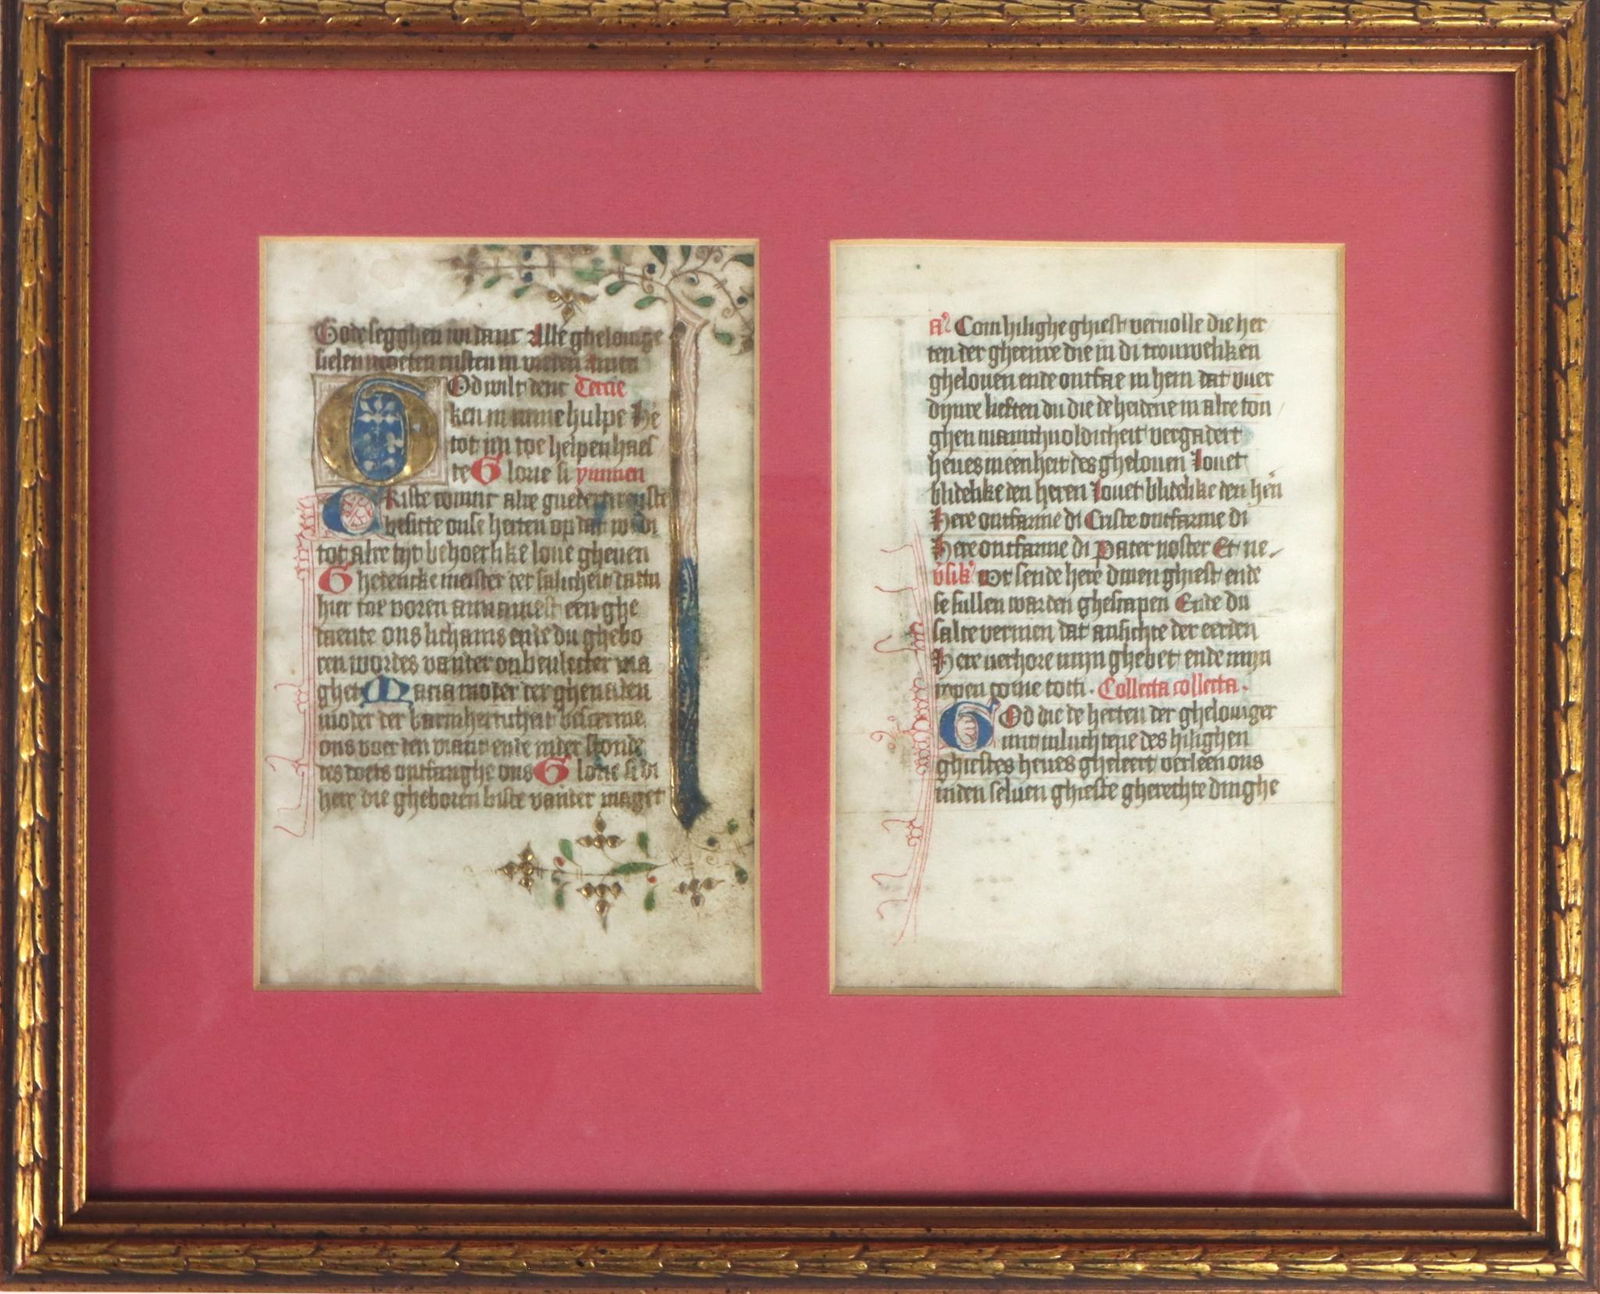 Gode segghen wi danc Alle ghelouige
sielen moeten rusten in vreden Amen
God wilt denc Tercie
ken in mine hulpe He
tot mi toe helpen haes
te Glorie si ymnen
Criste comt alre guedertierenste
besitte onse herten op dat wi di
tot alre tijt behoerlike loue gheuen
Ghedencke meister der salicheit dattu
hier toe voren ane naemst een ghe
daente ons lichams ende du ghebo
ren wordes vander onbeulecter ma
ghet Maria moder der ghenaden
moder der barmherticheit bescerme
ons voer den viant ende in der stonde
des doets ontfanghe ons Glorie si di
here die gheboren biste vander maget
a Com hilighe ghiest veruolle die her
ten der gheenre die in di trouweliken
ghelouen ende ontfae in hem dat vuer
dijnre lieften du die de heidene in alre ton
ghen manichuoldicheit vergadert
heues in eenheit des ghelouen Jouet
blidelike den heren Jouet blidelike den hern
Here ontfarme di Criste ontfarme di
Here ontfarme di Pater noster Et ne
sende here dinen ghiest ende
se sullen warden ghescapen Ende du
salte vernien dat ansichte der eerden
Here verhore mijn ghebet ende mijn
ropen come toti Collecta collecta
God die de herten der gheloui​ger
mit inluchtene des hilighen
ghiestes heues gheleert verleen ons
in den seluen ghieste gherechte dinghe